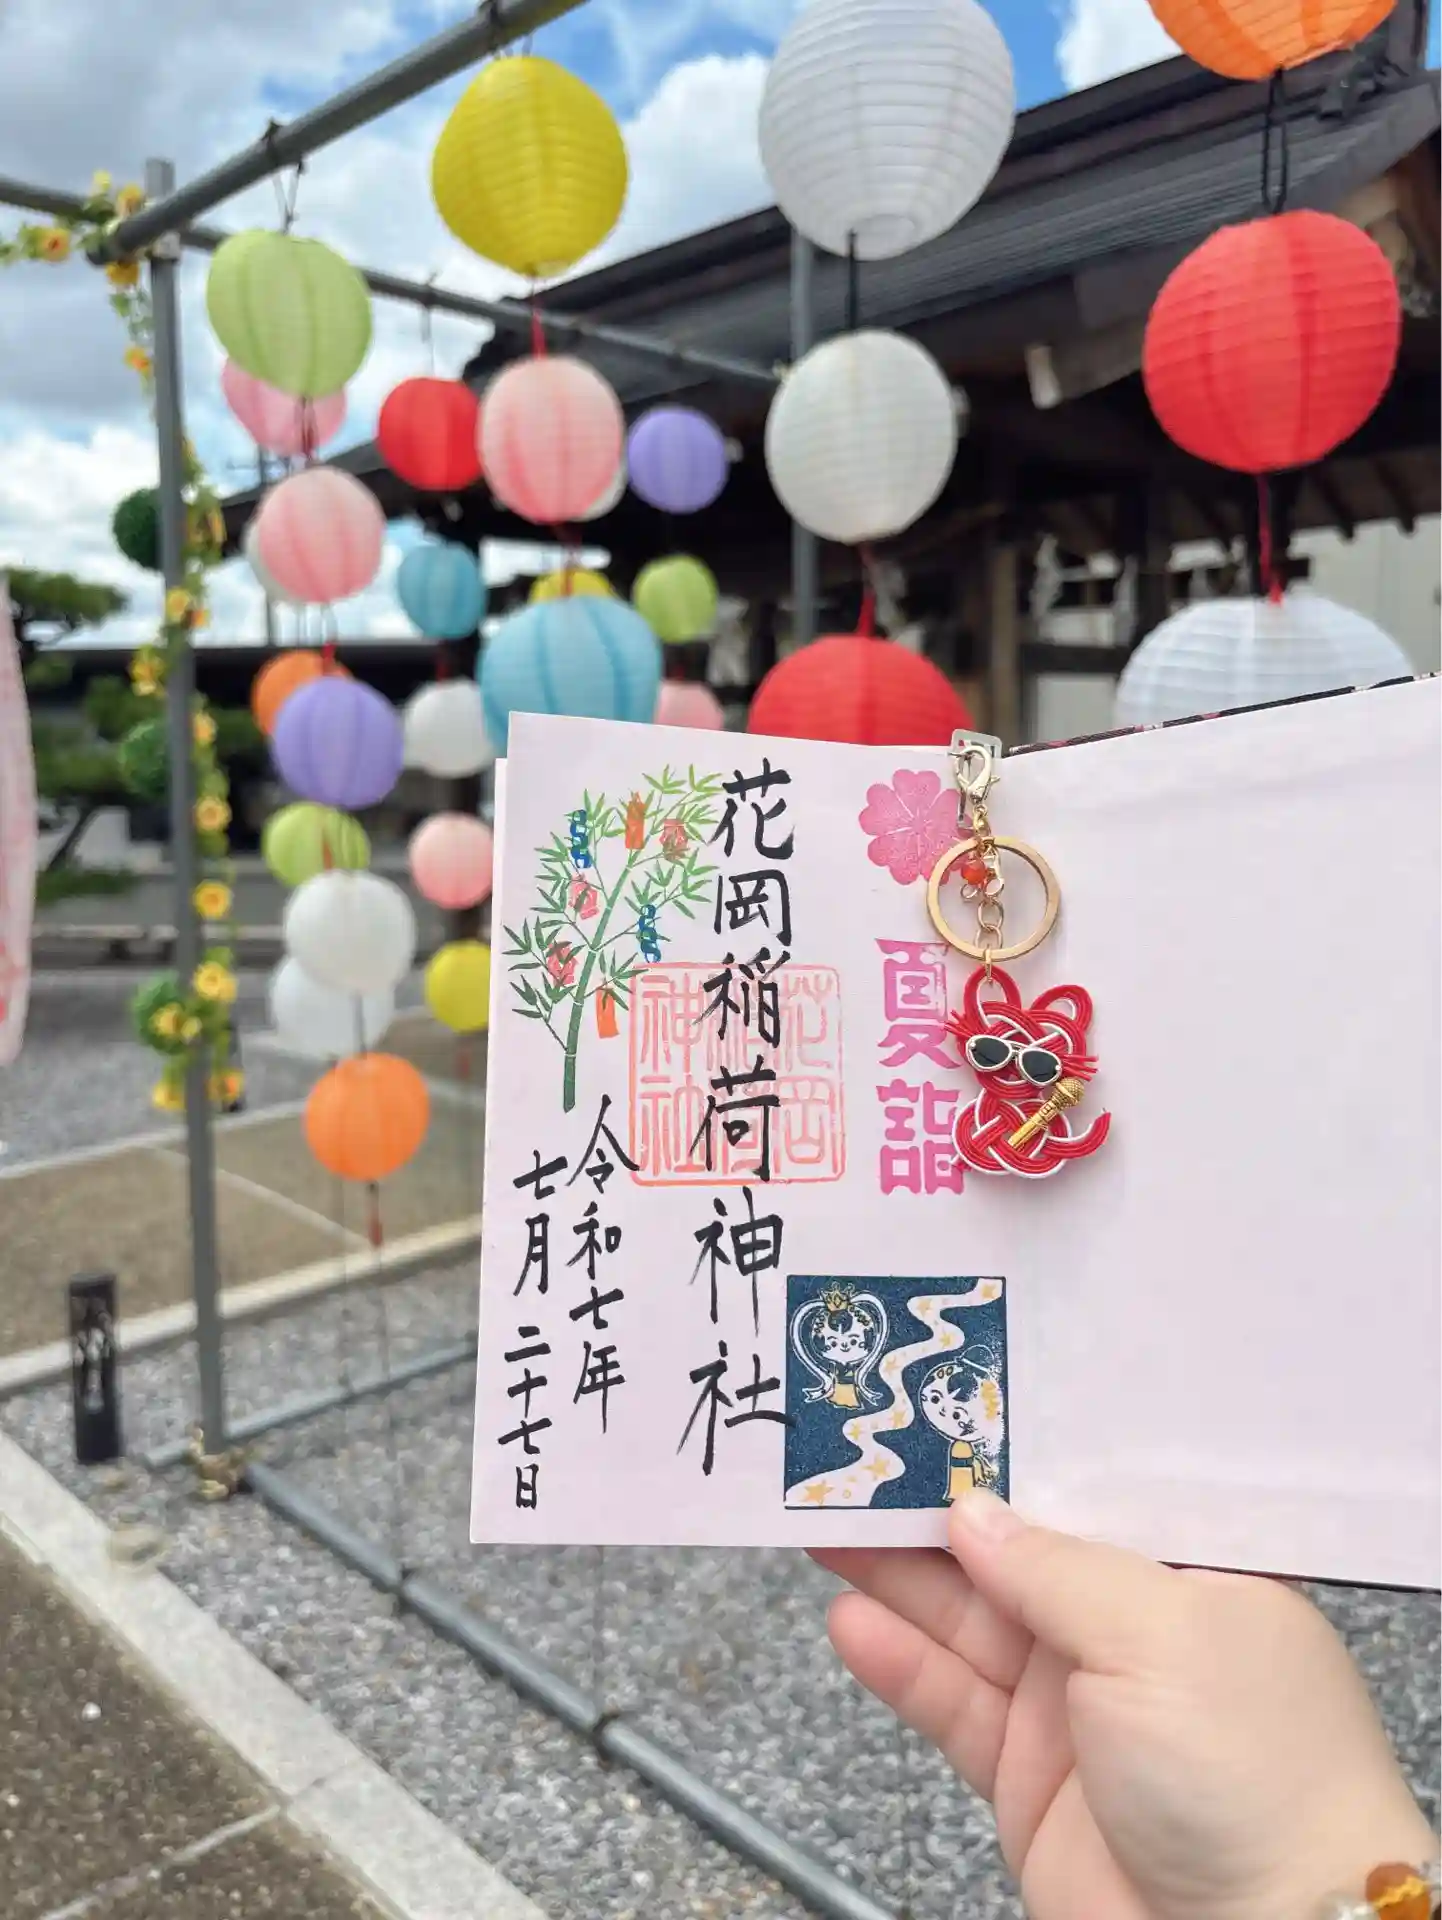 夏詣
花岡稲荷神社
花岡
稲荷
神社
令和七年
七月二十七日